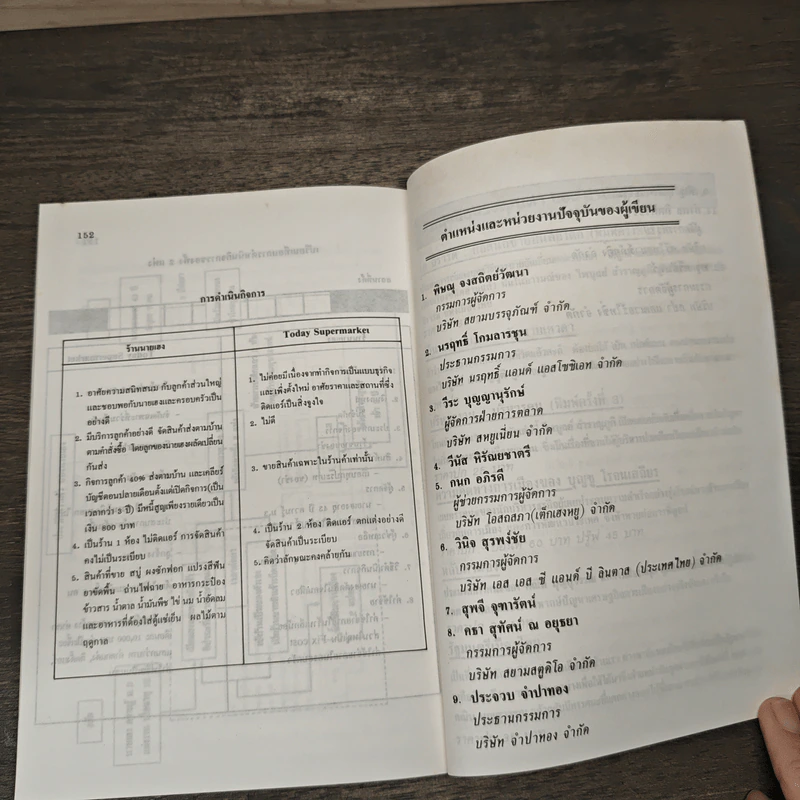 152
การดำเนินกิจการ
ร้านนายเฮง
1. อาศัยความสนิทสนม กับลูกค้าส่วนใหญ่
และชอบพอกับนายเฮงและครอบครัวเป็น
อย่างดี
2. มีบริการลูกค้าอย่างดี จัดสินค้าส่งตามบ้าน
ตามคำสั่งซื้อ โดยลูกของนายเฮงผลัดเปลี่ยน
กันส่ง
3. กิจการลูกค้า 40% ส่งตามบ้าน และเคลียร์
บัญชีตอนปลายเดือนตั้งแต่เปิดกิจการ(เป็น
เวลากว่า 3 ปี) มีหนี้สูญเพียงรายเดียวเป็น
เงิน 800 บาท
4. เป็นร้าน 1 ห้อง ไม่ติดแอร์ การจัดสินค้า
คงไม่เป็นระเบียบ
5. สินค้าที่ขาย สบู่ ผงซักฟอก แปรงสีฟัน
ยาขัดพื้น ถ่านไฟฉาย อาหารกระป๋อง
ข้าวสาร น้ำตาล น้ำมันพืช ไข่ นม น้ำอัดลม
และอาหารที่ต้องใส่ตู้แช่เย็น ผลไม้ตาม
ฤดูกาล
Today Supermarket
1. ไม่ค่อยมีเนื่องจากทำกิจการเป็นแบบธุรกิจ
และเพิ่งตั้งใหม่ อาศัยราคาและสถานที่ซึ่ง
ติดแอร์เป็นสิ่งจูงใจ
2. ไม่มี
3. ขายสินค้าเฉพาะในร้านค้าเท่านั้น
4. เป็นร้าน 2 ห้อง ติดแอร์ ตกแต่งอย่างดี
จัดสินค้าเป็นระเบียบ
5. คิดว่าลักษณะคงคล้ายกัน
ตำแหน่งและหน่วยงานปัจจุบันของผู้เขียน
1. พิษณุ จงสถิตย์วัฒนา
กรรมการผู้จัดการ
บริษัท สยามบรรจุภัณฑ์ จำกัด
2. นรฤทธิ์ โกมลารชุน
ประธานกรรมการ
บริษัท นรฤทธิ์ แอนด์ แอสโซซิเอท จำกัด
3. วีระ บุญญานุรักษ์
ผู้จัดการฝ่ายการตลาด
บริษัท สหยูเนี่ยน จำกัด
4. วีนัส หิรัณยชาตรี
5. กนก อภิรดี
ผู้ช่วยกรรมการผู้จัดการ
บริษัท โอสถสภา(เต็กเฮงหยู) จำกัด
6. วินิจ สุรพงษ์ชัย
กรรมการผู้จัดการ
บริษัท เอส เอส ซี แอนด์ บี ลินตาส (ประเทศไทย) จำกัด
7. สุพจี จุฑารัตน์
8. คธา สุทัศน์ ณ อยุธยา
กรรมการผู้จัดการ
บริษัท สยามสตูดิโอ จำกัด
9. ประจวบ จำปาทอง
ประธานกรรมการ
บริษัท จำปาทอง จำกัด